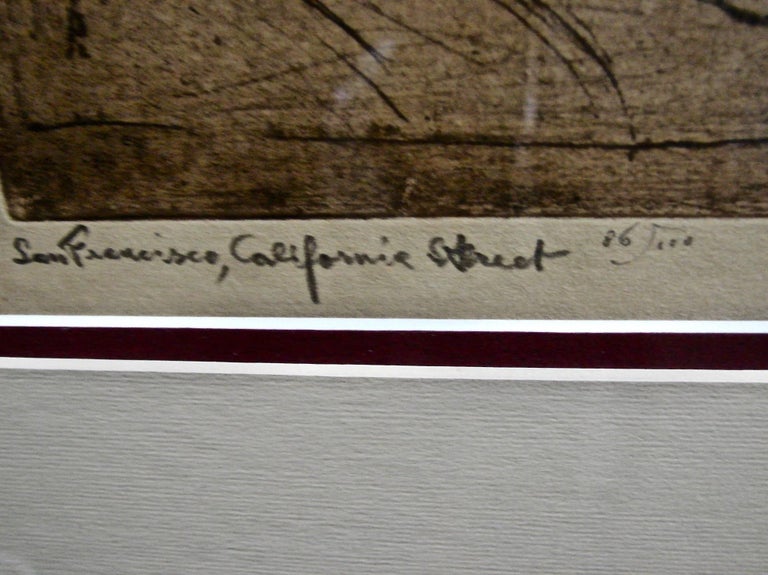 San Francisco, California Street 86/100